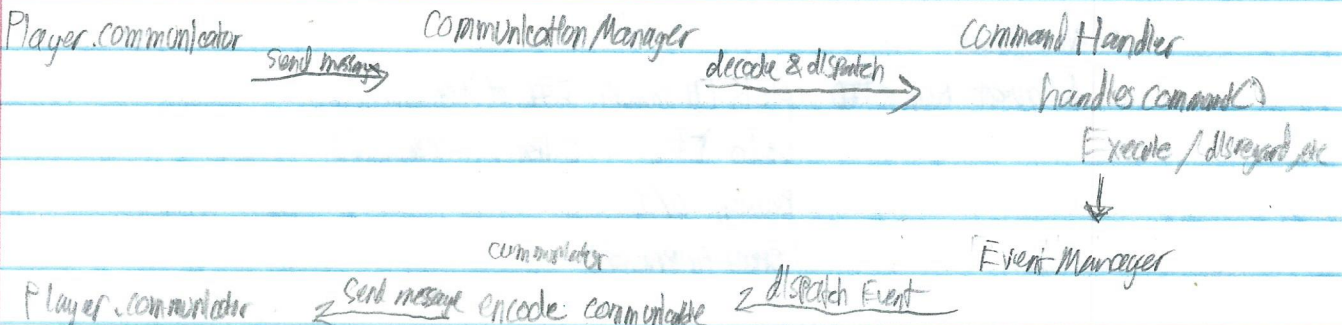 Player.communicator
send message
Communication Manager
decode & dispatch
Command Handler
handles command()
Execute / disregard, etc
Event Manager
dispatch Event
communicator
encode: communicable
send message
Player.communicator